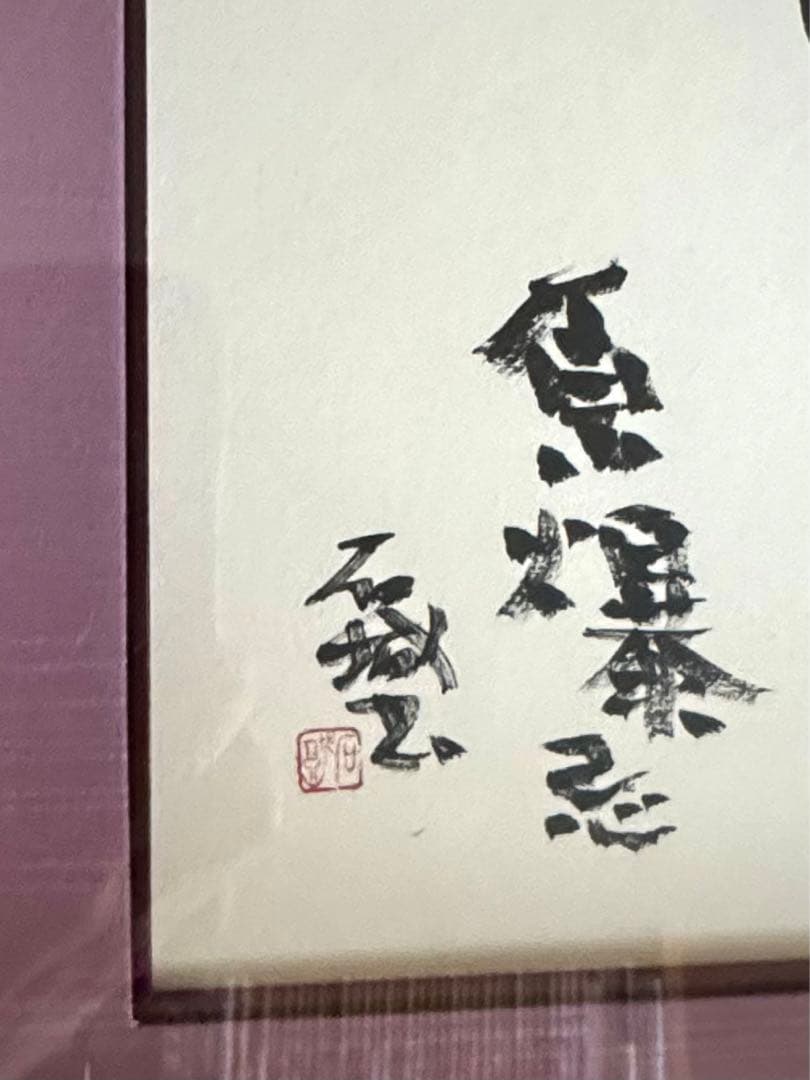 原爆忌
石城